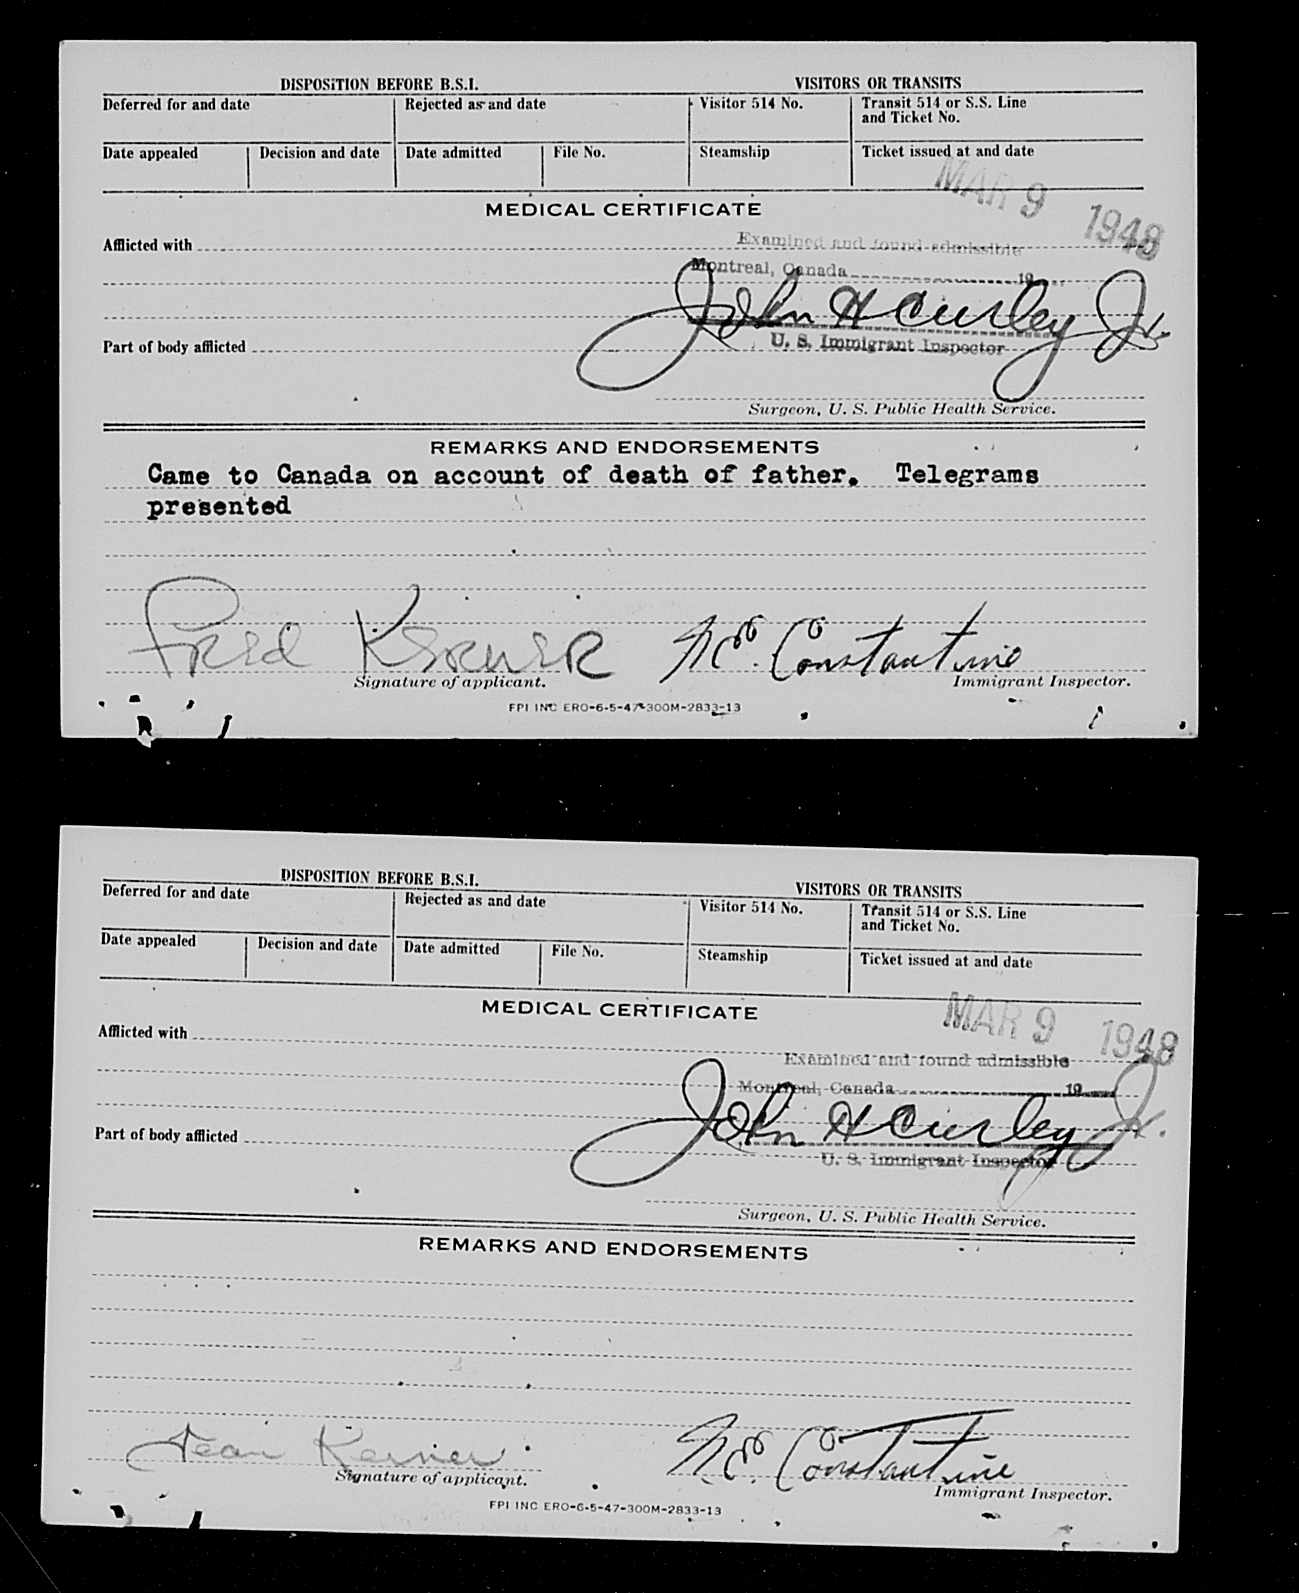 DISPOSITION BEFORE B.S.I. VISITORS OR TRANSITS
Deferred for and date Rejected as and date Visitor 514 No. Transit 514 or S.S. Line
and Ticket No.
Date appealed Decision and date Date admitted File No. Steamship Ticket issued at and date
MAR 9 1948
MEDICAL CERTIFICATE
Afflicted with
Examined and found admissible
Montreal, Canada 19
John H Curley Jr.
U. S. Immigrant Inspector
Part of body afflicted
Surgeon, U. S. Public Health Service.
REMARKS AND ENDORSEMENTS
Came to Canada on account of death of father. Telegrams
presented
Fred Kerner N.E. Constantine
Signature of applicant. Immigrant Inspector.
FPI INC ERO-6-5-47-300M-2833-13
DISPOSITION BEFORE B.S.I. VISITORS OR TRANSITS
Deferred for and date Rejected as and date Visitor 514 No. Transit 514 or S.S. Line
and Ticket No.
Date appealed Decision and date Date admitted File No. Steamship Ticket issued at and date
MAR 9 1948
MEDICAL CERTIFICATE
Afflicted with
Examined and found admissible
Montreal, Canada 19
John H Curley Jr.
U. S. Immigrant Inspector
Part of body afflicted
Surgeon, U. S. Public Health Service.
REMARKS AND ENDORSEMENTS
Jean Kerner N.E. Constantine
Signature of applicant. Immigrant Inspector.
FPI INC ERO-6-5-47-300M-2833-13